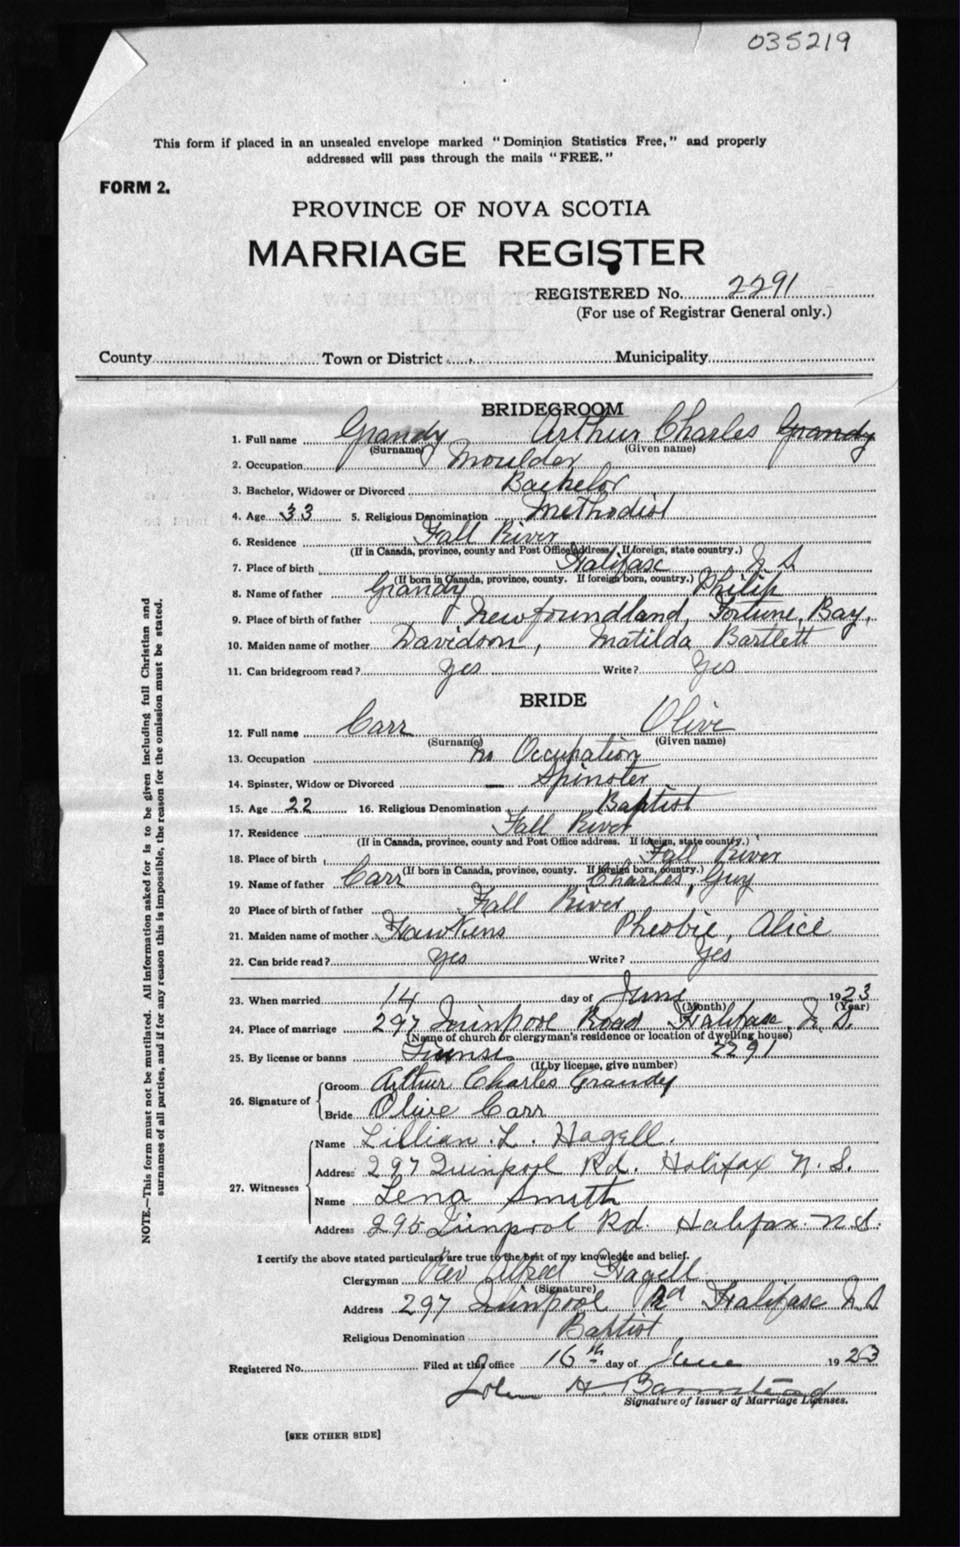 035219
This form if placed in an unsealed envelope marked "Dominion Statistics Free," and properly
addressed will pass through the mails "FREE."
FORM 2.
PROVINCE OF NOVA SCOTIA
MARRIAGE REGISTER
REGISTERED No. 2291
(For use of Registrar General only.)
County Town or District Municipality
BRIDEGROOM
1. Full name Grandy Arthur Charles Grandy
(Surname) (Given name)
2. Occupation Moulder
3. Bachelor, Widower or Divorced Bachelor
4. Age 33 5. Religious Denomination Methodist
6. Residence Fall River
(If in Canada, province, county and Post Office address. If foreign, state country.)
7. Place of birth Halifax N S
(If born in Canada, province, county. If foreign born, country.)
8. Name of father Grandy Philip
9. Place of birth of father Newfoundland, Fortune Bay,
10. Maiden name of mother Davidson, Matilda Bartlett
11. Can bridegroom read? Yes Write? Yes
BRIDE
12. Full name Carr Olive
(Surname) (Given name)
13. Occupation No Occupation
14. Spinster, Widow or Divorced Spinster
15. Age 22 16. Religious Denomination Baptist
17. Residence Fall River
(If in Canada, province, county and Post Office address. If foreign, state country.)
18. Place of birth Fall River
(If born in Canada, province, county. If foreign born, country.)
19. Name of father Carr Charles, Guy
20 Place of birth of father Fall River
21. Maiden name of mother Hawkins Pheobie, Alice
22. Can bride read? Yes Write? Yes
23. When married 14 day of June 1923
(Month) (Year)
24. Place of marriage 297 Quinpool Road Halifax, N. S.
(Name of church or clergyman's residence or location of dwelling house)
25. By license or banns 2291
(If by license, give number)
26. Signature of Groom Arthur Charles Grandy
Bride Olive Carr
27. Witnesses Name Lillian. L. Hagell.
Address 297 Quinpool Rd. Halifax N. S.
Name Lena Smith
Address 295 Quinpool Rd. Halifax. N.S.
I certify the above stated particulars are true to the best of my knowledge and belief.
Clergyman Rev Alfred Hagell
(Signature)
Address 297 Quinpool Rd Halifax N S
Religious Denomination Baptist
Registered No. Filed at this office 16th day of June 1923
John H. Barnstead
Signature of Issuer of Marriage Licenses.
[SEE OTHER SIDE]
NOTE.—This form must not be mutilated. All information asked for is to be given including full Christian and
surnames of all parties, and if for any reason this is impossible, the reason for the omission must be stated.